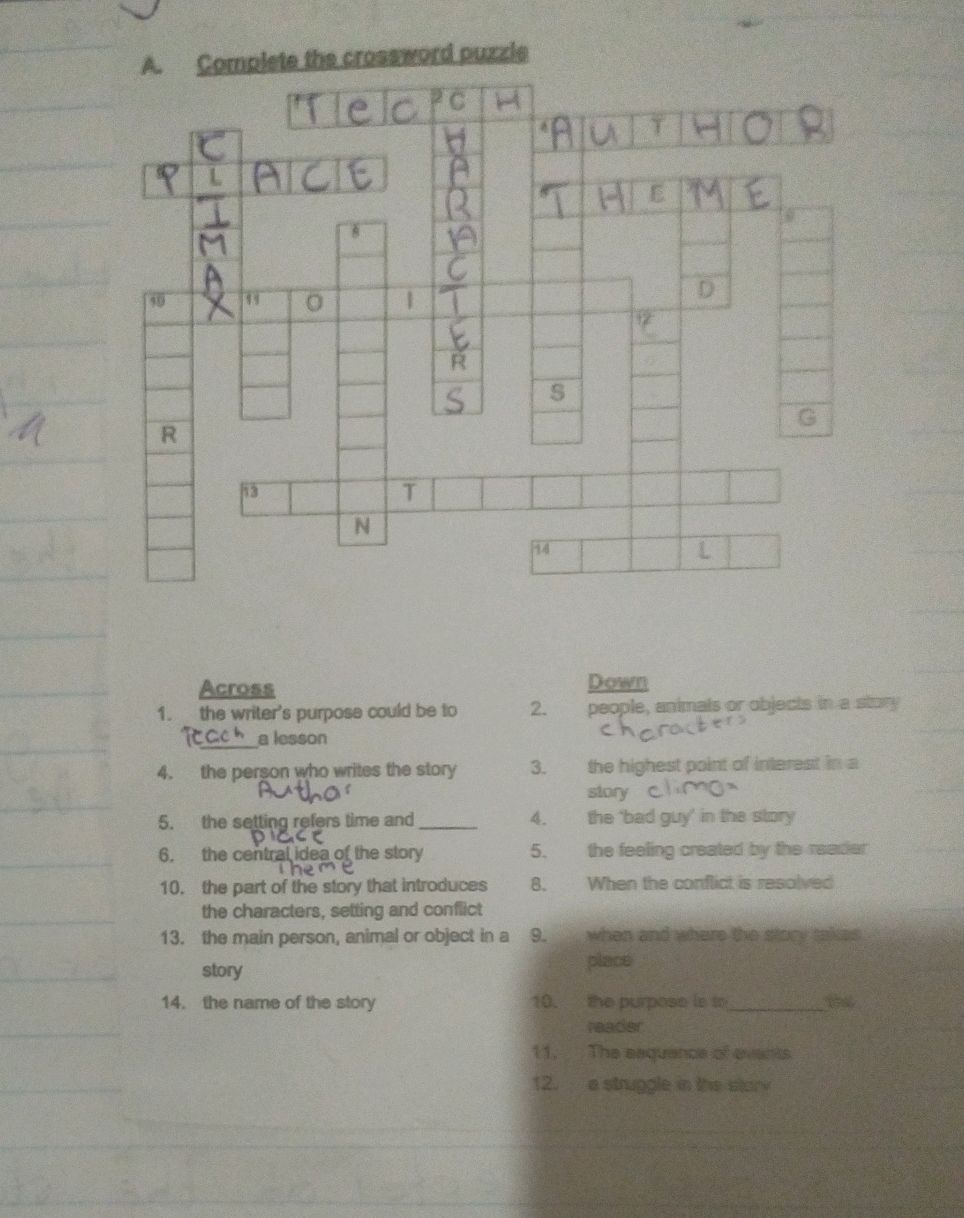 A. Complete the crossword puzzle
T e c P C H
A U T H O R
P L A C E
T H E M E
C L I M A X
C H A R A C T E R S
8
9
D
10 11 O I
12
S
G
R
13 T
N
14 L
Across
1. the writer's purpose could be to
Teach a lesson
4. the person who writes the story
Author
5. the setting refers time and ______
place
6. the central idea of the story
Theme
10. the part of the story that introduces
the characters, setting and conflict
13. the main person, animal or object in a
story
14. the name of the story
Down
2. people, animals or objects in a story
characters
3. the highest point of interest in a
story climax
4. the 'bad guy' in the story
5. the feeling created by the reader
8. When the conflict is resolved
9. when and where the story takes
place
10. the purpose is to_________the
reader
11. The sequence of events
12. a struggle in the story